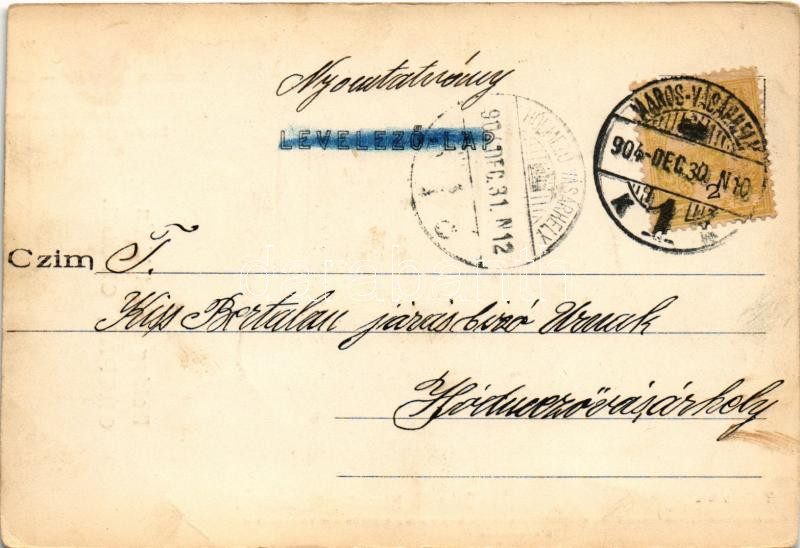 Nyomtatvány
LEVELEZŐ-LAP
MAROS-VÁSÁRHELY
904 DEC. 30. N 10
K 1
HÓDMEZŐ VÁSÁRHELY
904 DEC. 31. N 12
2
Czim T.
Kiss Bertalan járásbiró Urnak
Hódmezővásárhely
darabanth